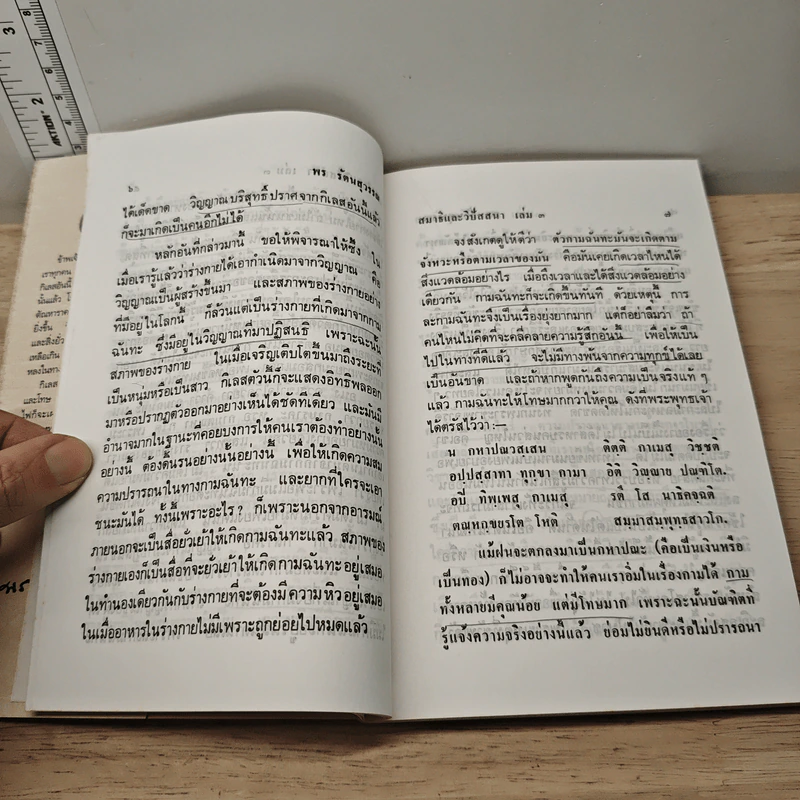 ๖
พร รัตนสุวรรณ
ได้เด็ดขาด วิญญาณบริสุทธิ์ ปราศจากกิเลสอันนี้แล้ว
ก็จะมาเกิดเป็นคนอีกไม่ได้
หลักอันที่กล่าวมานี้ ขอให้พิจารณาให้ซึ้ง ใน
เมื่อเรารู้แล้วว่าร่างกายได้เอากำเนิดมาจากวิญญาณ คือ
วิญญาณเป็นผู้สร้างขึ้นมา และสภาพของร่างกายอย่าง
ที่มีอยู่ในโลกนี้ ก็ล้วนแต่เป็นร่างกายที่เกิดมาจากกาม
ฉันทะ ซึ่งมีอยู่ในวิญญาณที่มาปฏิสนธิ เพราะฉะนั้น
สภาพของร่างกาย ในเมื่อเจริญเติบโตขึ้นมาถึงระยะที่
เป็นหนุ่มหรือเป็นสาว กิเลสตัวนี้ก็จะแสดงอิทธิพลออก
มาหรือปรากฏตัวออกมาอย่างเห็นได้ชัดทีเดียว และมันมี
อำนาจมากในฐานะที่คอยบงการให้คนเราต้องทำอย่างนั้น
อย่างนี้ ต้องดิ้นรนอย่างนั้นอย่างนี้ เพื่อให้เกิดความสม
ความปรารถนาในทางกามฉันทะ และยากที่ใครจะเอา
ชนะมันได้ ทั้งนี้เพราะอะไร? ก็เพราะนอกจากอารมณ์
ภายนอกจะเป็นสื่อยั่วเย้าให้เกิดกามฉันทะแล้ว สภาพของ
ร่างกายเองก็เป็นสื่อที่จะยั่วเย้าให้เกิดกามฉันทะอยู่เสมอ
ในทำนองเดียวกันกับร่างกายที่จะต้องมีความหิวอยู่เสมอ
ในเมื่ออาหารในร่างกายไม่มีเพราะถูกย่อยไปหมดแล้ว
สมาธิและวิปัสสนา เล่ม ๓
๗
จงสังเกตดูให้ดีว่า ตัวกามฉันทะมันจะเกิดตาม
จังหวะหรือตามเวลาของมัน คือมันเคยเกิดเวลาไหนได้
สิ่งแวดล้อมอย่างไร เมื่อถึงเวลาและได้สิ่งแวดล้อมอย่าง
เดียวกัน กามฉันทะก็จะเกิดขึ้นทันที ด้วยเหตุนี้ การ
ละกามฉันทะจึงเป็นเรื่องยุ่งยากมาก แต่ก็อย่าลืมว่า ถ้า
คนไหนไม่คิดที่จะคลี่คลายความรู้สึกอันนี้ เพื่อให้เป็น
ไปในทางที่ดีแล้ว จะไม่มีทางพ้นจากความทุกข์ได้เลย
เป็นอันขาด และถ้าหากพูดกันถึงความเป็นจริงแท้ ๆ
แล้ว กามฉันทะให้โทษมากกว่าให้คุณ ดังที่พระพุทธเจ้า
ได้ตรัสไว้ว่า :—
น กหาปณวสฺเสน ติตฺติ กาเมสุ วิชฺชติ
อปฺปสฺสาทา ทุกฺขา กามา อิติ วิญฺญาย ปณฺฑิโต.
อปิ ทิพฺเพสุ กาเมสุ รตึ โส นาธิคจฺฉติ
ตณฺหกฺขยรโต โหติ สมฺมาสมฺพุทฺธสาวโก.
แม้ฝนจะตกลงมาเป็นกหาปณะ (คือเป็นเงินหรือ
เป็นทอง) ก็ไม่อาจจะทำให้คนเราอิ่มในเรื่องกามได้ กาม
ทั้งหลายมีคุณน้อย แต่มีโทษมาก เพราะฉะนั้นบัณฑิตที่
รู้แจ้งความจริงอย่างนี้แล้ว ย่อมไม่ยินดีหรือไม่ปรารถนา